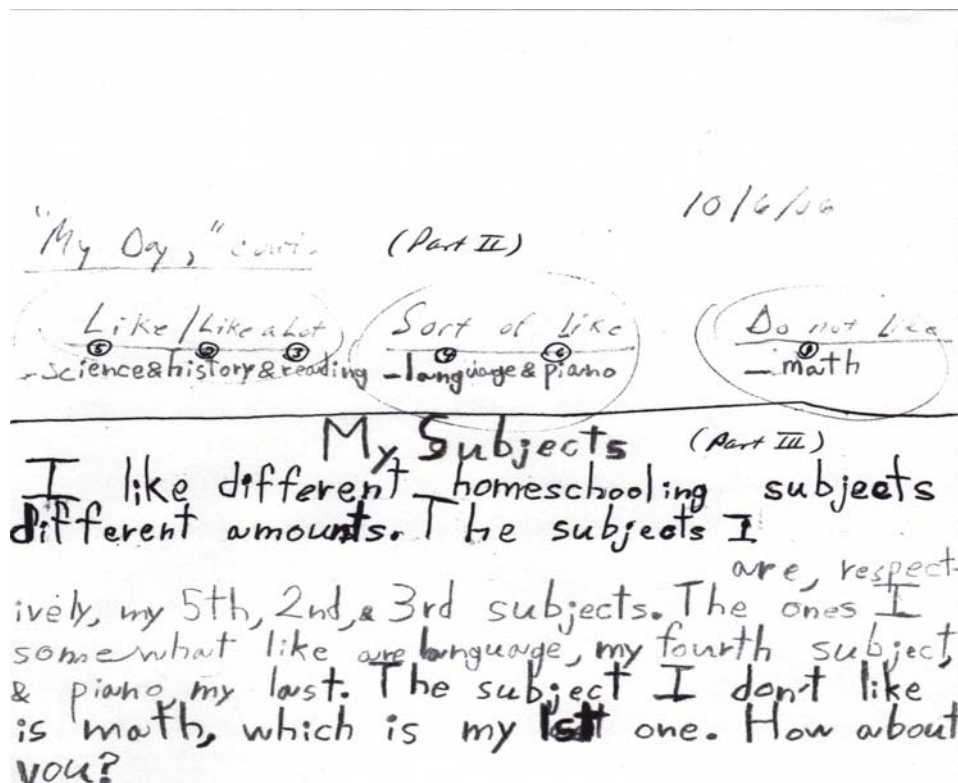 10/6/06
"My Day," cont. (Part II)
Like/Like a Lot Sort of Like Do not Like
5 2 3 4 6 1
-science&history&reading -language&piano -math
My Subjects (Part III)
I like different homeschooling subjects
different amounts. The subjects I
are, respect-
ively, my 5th, 2nd, & 3rd subjects. The ones I
somewhat like are language, my fourth subject,
& piano, my last. The subject I don't like
is math, which is my 1st one. How about
you?